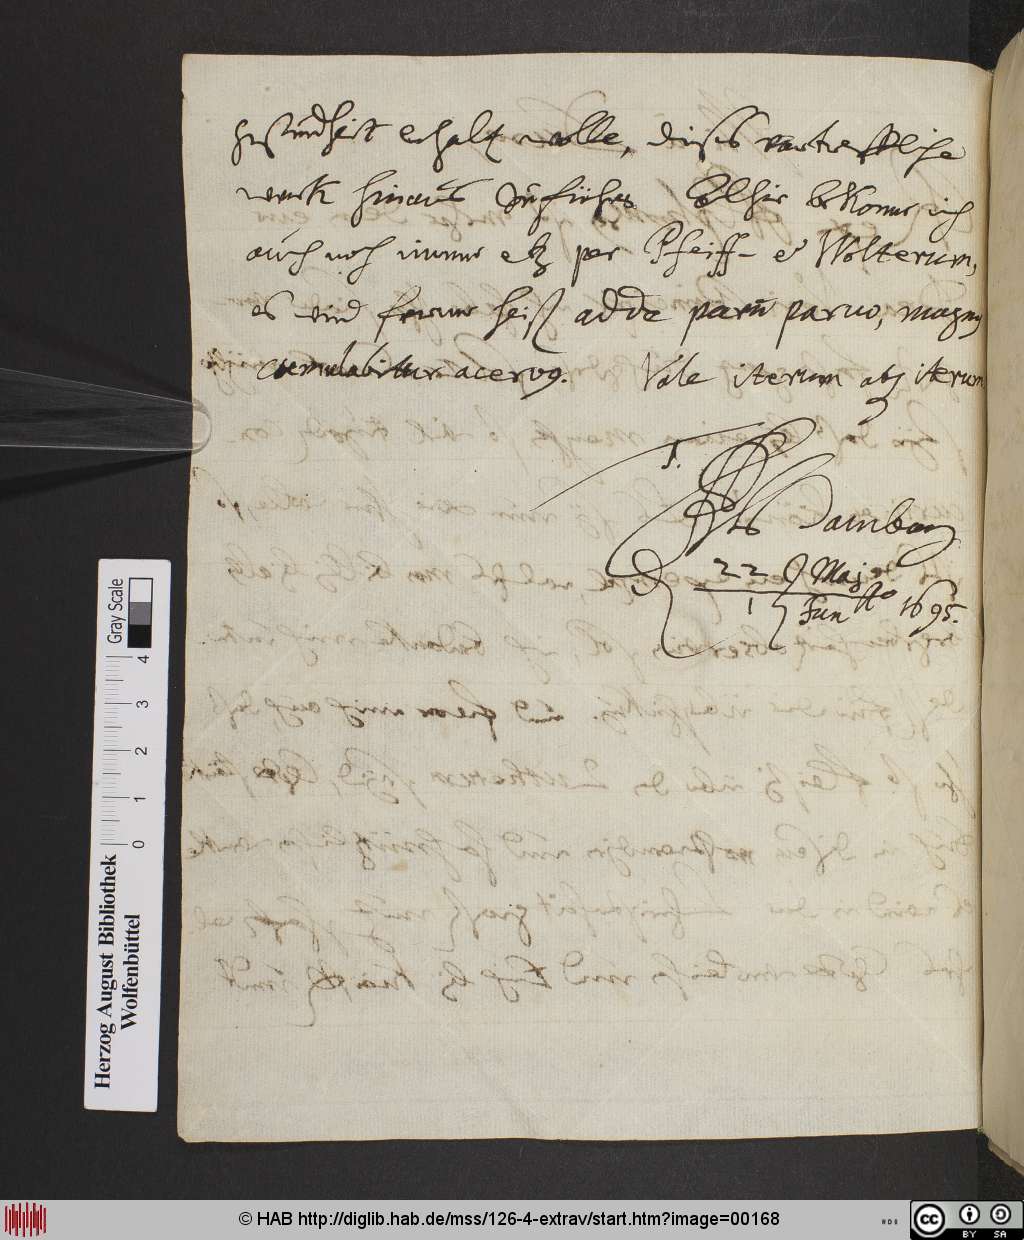 gesundheit erhalt wolle, dieses vortreffliche
werk hinaus Zuführen. Alhier bekome ich
auch noch immer per Pfeiff- et Wolterum,
es wird ferner heiß adde parū parvo, magn9
cumulabitur acerv9. Vale iterum atq iterum
T.
22 Maj
1 Jun 1695.
0 1 2 3 4
Gray Scale
Herzog August Bibliothek
Wolfenbüttel
© HAB http://diglib.hab.de/mss/126-4-extrav/start.htm?image=00168
cc BY SA